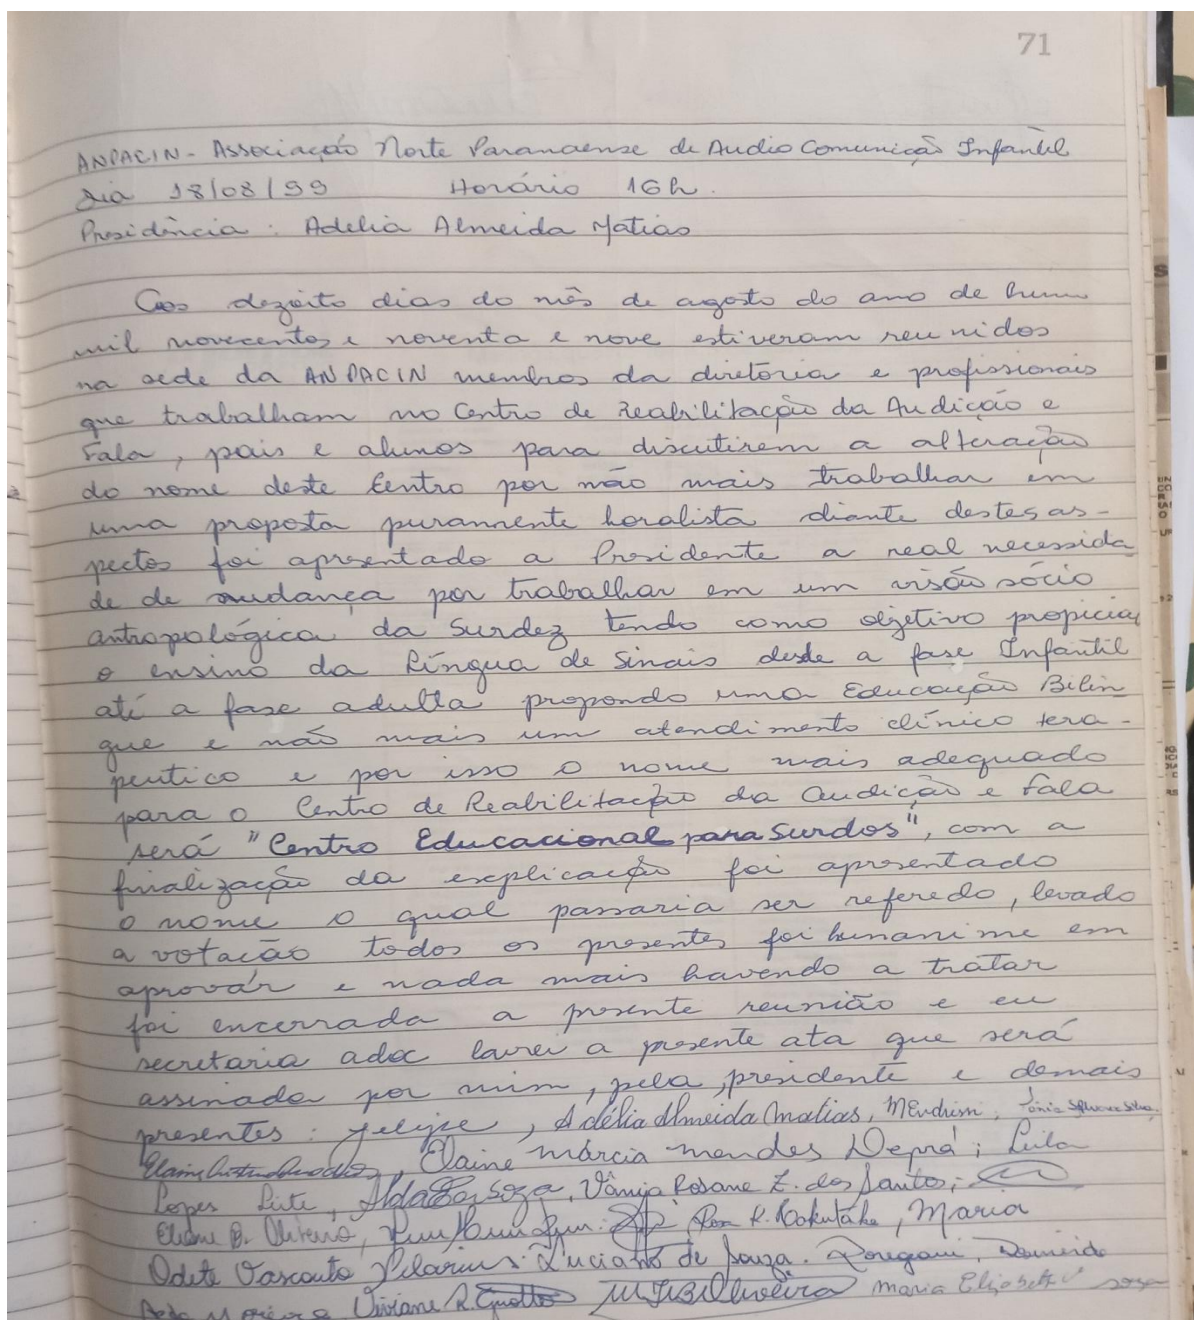 71
ANPACIN - Associação Norte Paranaense de Audio Comunicação Infantil
Dia 18/08/99 Horário 16h.
Presidência: Adelia Almeida Matias
Aos dezoito dias do mês de agosto do ano de hum
mil novecentos e noventa e nove estiveram reunidos
na sede da ANPACIN membros da diretoria e profissionais
que trabalham no Centro de Reabilitação da Audição e
Fala, pais e alunos para discutirem a alteração
do nome deste Centro por não mais trabalhar em
uma proposta puramente horalista diante destes as-
pectos foi apresentado a Presidente a real necessida
de de mudança por trabalhar em um visão sócio
antropológica da Surdez tendo como objetivo propiciar
o ensino da Língua de Sinais desde a fase Infantil
até a fase adulta propondo uma Educação Bilin
gue e não mais um atendimento clínico tera-
peutico e por isso o nome mais adequado
para o Centro de Reabilitação da Audição e Fala
será "Centro Educacional para Surdos", com a
finalização da explicação foi apresentado
o nome o qual passaria ser referedo, levado
a votação todos os presentes foi hunanime em
aprovár e nada mais havendo a tratar
foi encerrada a presente reunião e eu
secretaria adoc lavrei a presente ata que será
assinada por mim, pela presidente e demais
presentes: Felipe, Adélia Almeida Matias,
Elaine Márcia Mendes Deprá; Leila
Lopes Leite, Vânia Rosane Z. dos Santos;
Eliane B. Maria
Odete Vascouto Luciano de Souza.
Viviane R. Maria Elizabeth